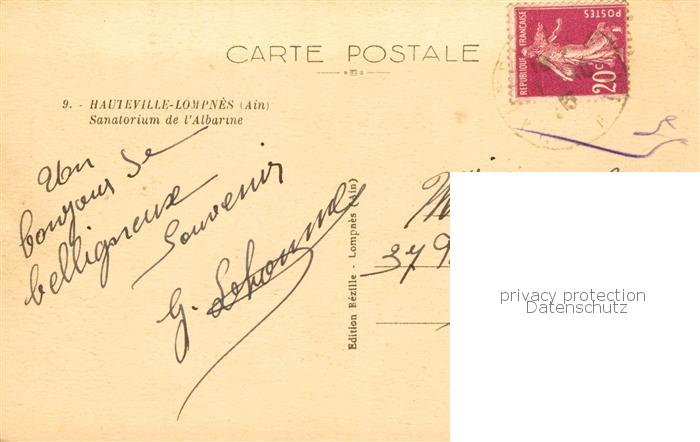 CARTE POSTALE
REPUBLIQUE FRANÇAISE
POSTES
20c
9. - HAUTEVILLE-LOMPNÈS (Ain)
Sanatorium de l'Albarine
Un
bonjour de
belligneux
Souvenir
G.
Edition Bézille - Lompnès (Ain)
37
privacy protection
Datenschutz